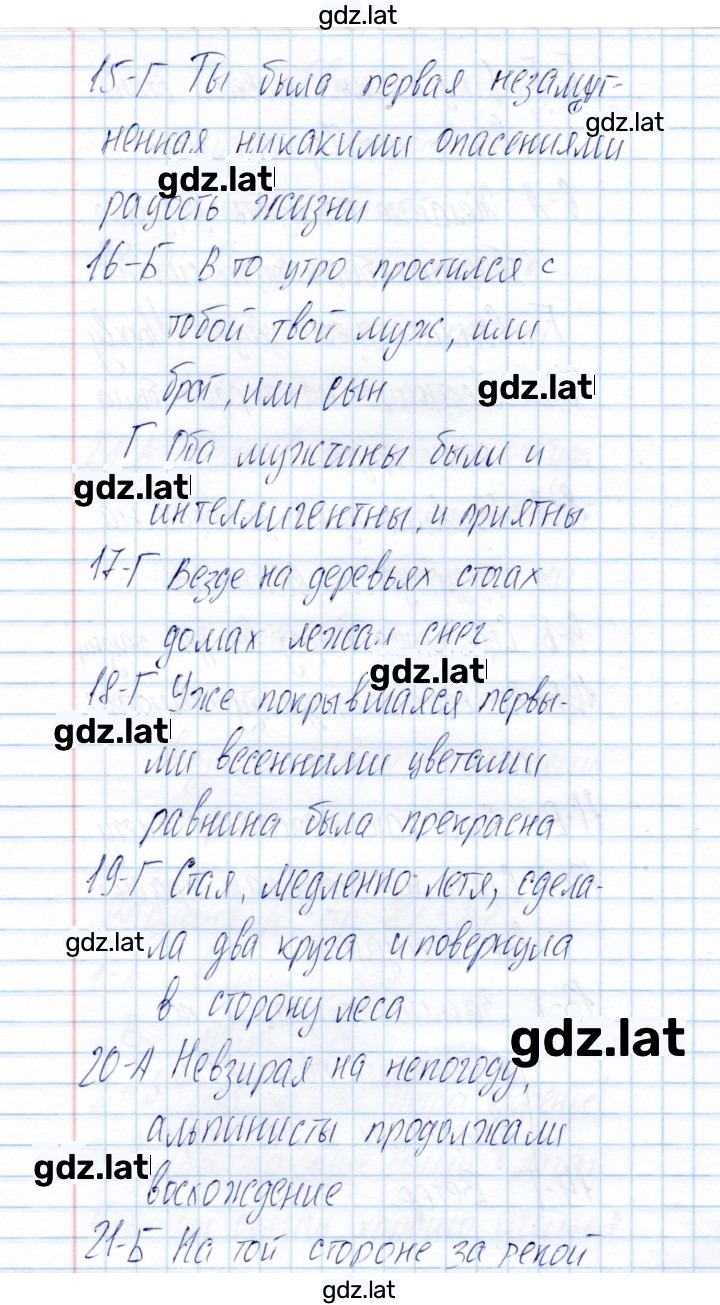 gdz.lat
15-Г Ты была первая незамут-
gdz.lat
ненная никакими опасениями
gdz.lat
радость жизни
16-Б В то утро простился с
тобой твой муж, или
брат, или сын
gdz.lat
Г Оба мужчины были и
gdz.lat
интеллигентны, и приятны
17-Г Везде на деревьях стогах
домах лежал снег
gdz.lat
18-Г Уже покрывшаяся первы-
gdz.lat
ми весенними цветами
равнина была прекрасна
19-Г Стая, медленно летя, сдела-
gdz.lat
ла два круга и повернула
в сторону леса
gdz.lat
20-А Невзирая на непогоду,
альпинисты продолжали
gdz.lat
восхождение
21-Б На той стороне за рекой
gdz.lat